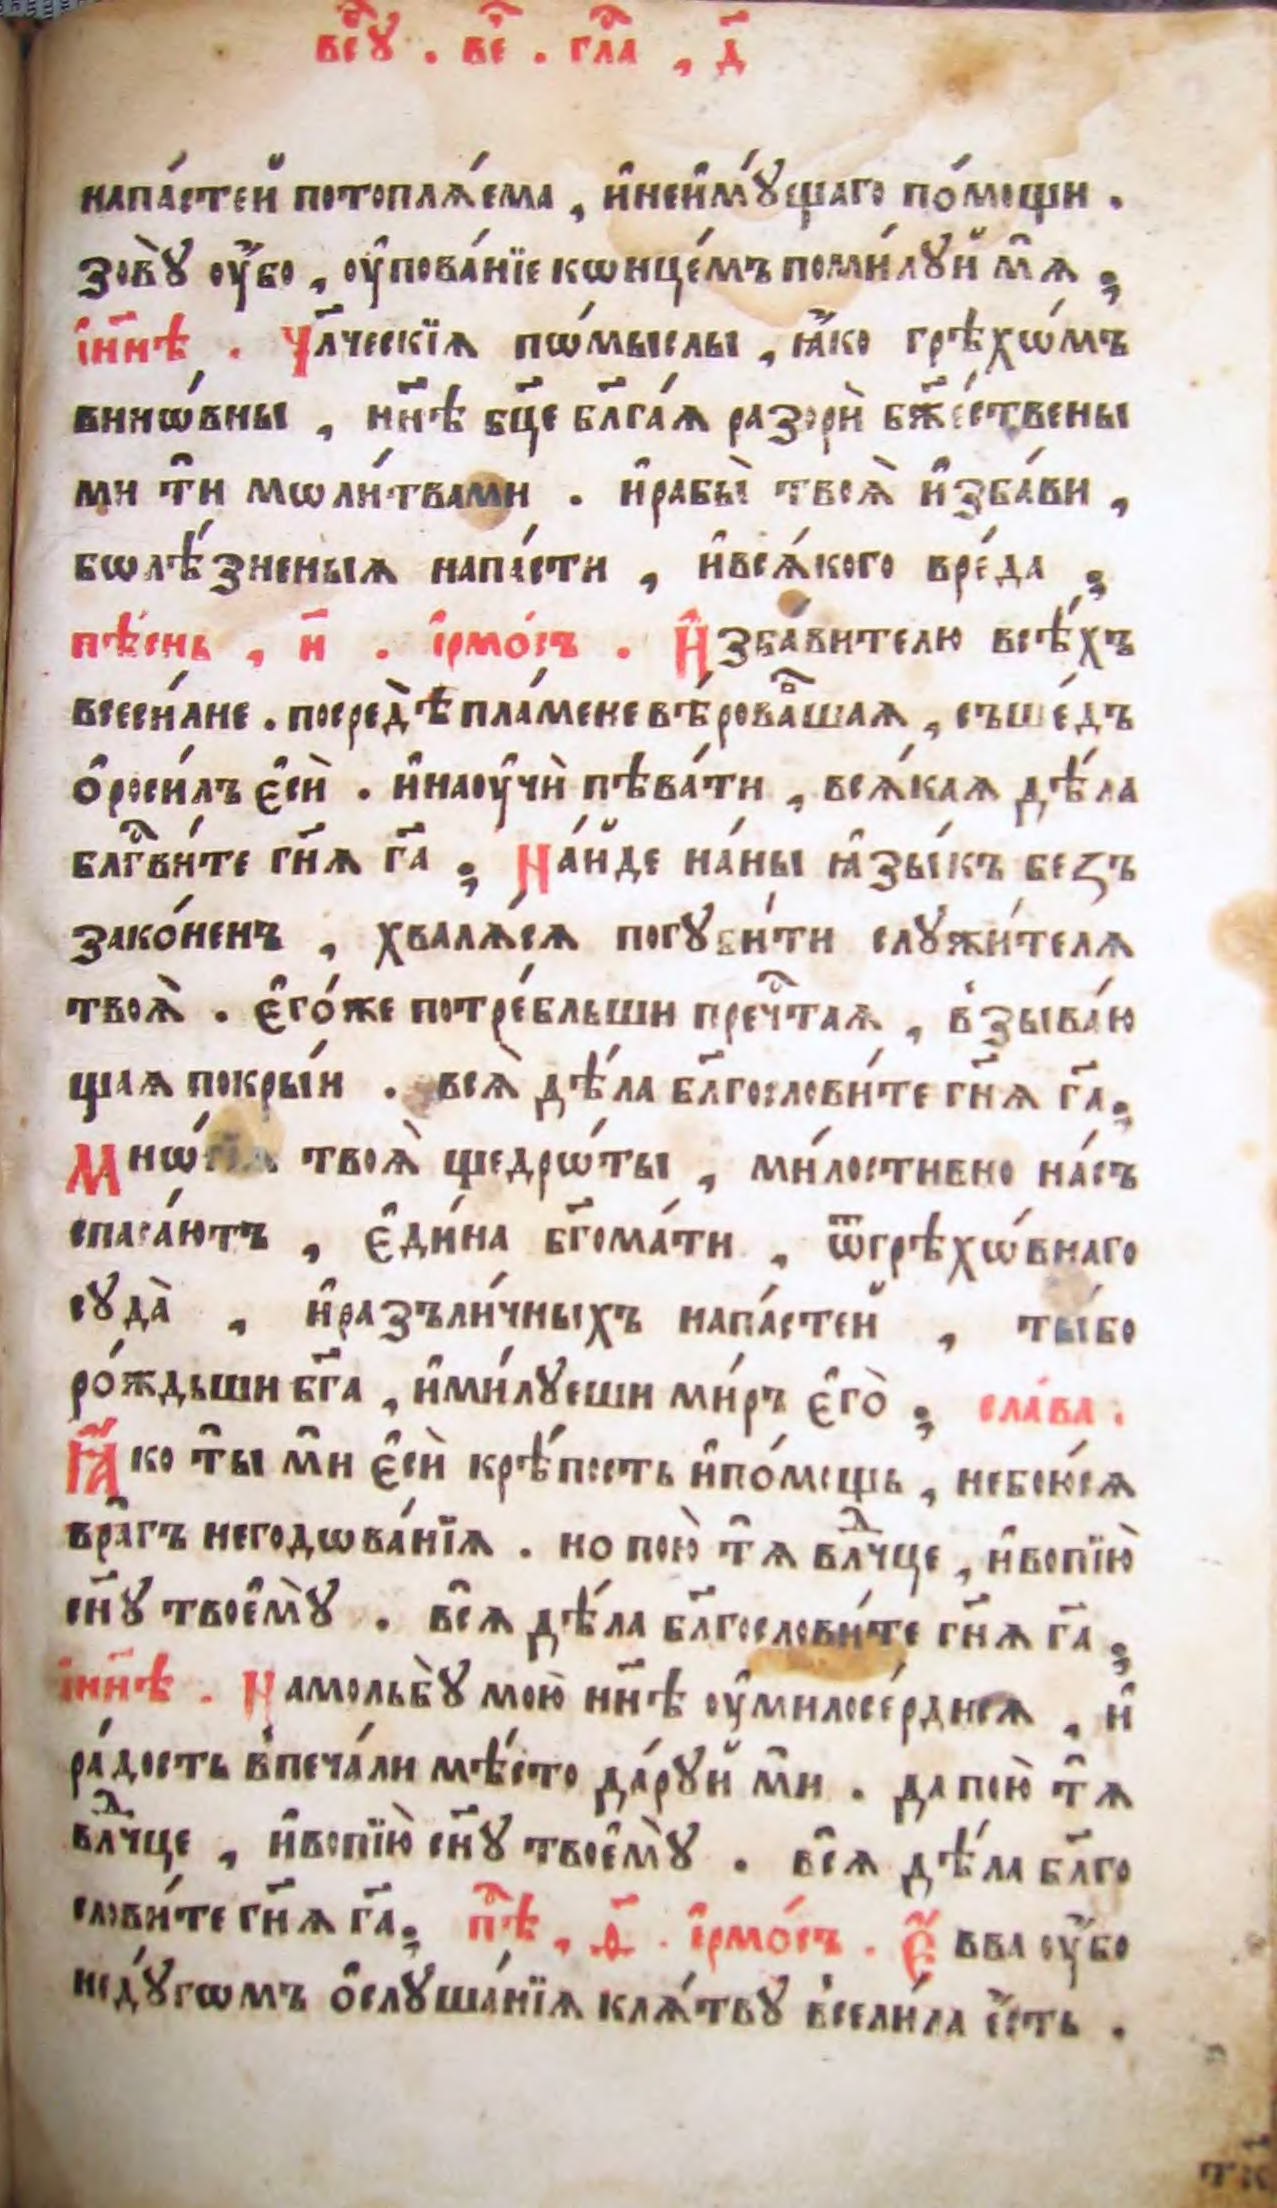 в̾сꙋ . ве́ . гла̑ , д҃
напа́стей потоплѧ́ема , и҆неи҆мꙋ́щаго по́мощи .
зовꙋ̀ ᲂу҆́бо , ᲂу҆пова́нїе кѡнце́мъ поми́лꙋй мѧ̑ ;
і҆нн҃ѣ . Чл҃ческїѧ пѡ́мыслы , ꙗ҆́ко грѣхѡ́мъ
винѡ́вны , нн҃ѣ бц҃е бл҃га́ѧ разорѝ бж҃е́ствены
ми тѝ мѡли́твами . и҆рабы̀ твоѧ̀ и҆зба́ви ,
бѡлѣ́зненыѧ напа́сти , и҆всѧ́кого вре́да ;
пѣ́снь , и҃ . і҆рмо́съ . И҆збавителю всѣ́хъ
всеси́лне . посредѣ̀ пла́мене вѣ́рова̑вшаѧ , съше́дъ
ѻ҆роси́лъ є҆сѝ . и҆наᲂу҆чѝ пѣва́ти , всѧ́каѧ дѣ́ла
блг҇ви́те гн҃ѧ г҃а ; На́йде на́ны ꙗ҆зы́къ беꙁъ
зако́ненъ , хвалѧ́сѧ погꙋби́ти слꙋжи́телѧ
твоѧ̀ . є҆го́же потре́бльши преч҇таѧ , взыва́ю
щаѧ покры́и . всѧ̀ дѣ́ла бл҃гослови́те гн҃ѧ г҃а ;
Мнѡ́гїѧ твоѧ̀ щедрѡ́ты , ми́лостивно на́съ
спаса́ютъ , є҆ди́на бг҃ома́ти , ѿгрѣхѡ́внаго
сꙋда̀ , и҆разъли́чныхъ напа́стей , ты́бо
ро́ждьши бг҃а , и҆ми́лꙋеши ми́ръ є҆го̀ ; сла́ва .
Ꙗ҆́ко ты̑ мѝ є҆сѝ крѣ́пость и҆по́мощь , небою́сѧ
вра̑гъ негодѡва́нїѧ . но пою̀ тѧ̑ влⷣчце , и҆вопїю̀
сн҃ꙋ твоемꙋ̀ . всѧ̑ дѣ́ла бл҃гослови́те гн҃ѧ г҃а ;
і҆нн҃ѣ . Намольбꙋ̀ мою̀ нн҃ѣ ᲂу҆милосе́рднсѧ , и҆
ра́дость впеча́ли мѣ́сто да́рꙋй мѝ . да пою̀ тѧ̑
влⷣчце , и҆вопїю̀ сн҃ꙋ твоемꙋ̀ . всѧ̑ дѣ́ла бл҃го
слови́те гн҃ѧ г҃а ; пѣ̑ , ѳ҃ . і҆рмо́съ . Є҆́вва ᲂу҆́бо
недꙋ́гѡмъ ѻ҆слꙋша́нїѧ клѧ́твꙋ всели́ла є҆́сть .